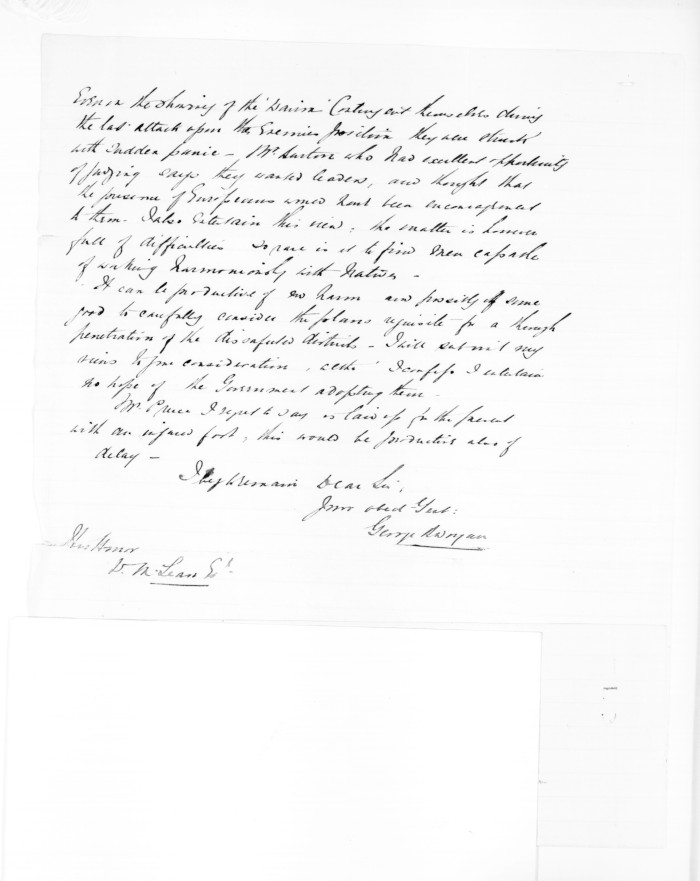 Even on the showing of the 'Wairoa' Contingent themselves during
the last attack upon the Enemies position they were struck
with sudden panic - Mr. Burton who had excellent opportunity
of judging says they wanted leaders, and thought that
the presence of Europeans would have been encouragement
to them - I also Entertain this view; the matter is however
full of difficulties so rare is it to find men capable
of working harmoniously with Natives -
It can be productive of no harm and possibly of some
good to carefully consider the plans requisite for a thorough
penetration of the dissafected districts - I will submit my
views to your consideration, altho' I confess I entertain
no hope of the Government adopting them -
Mr. I regret to say is laid up for the present
with an injured foot, this would be productive also of
delay -
I beg to remain Dear Sir,
Your obed Servt:
George
His Honor
D. McLean Esqr.